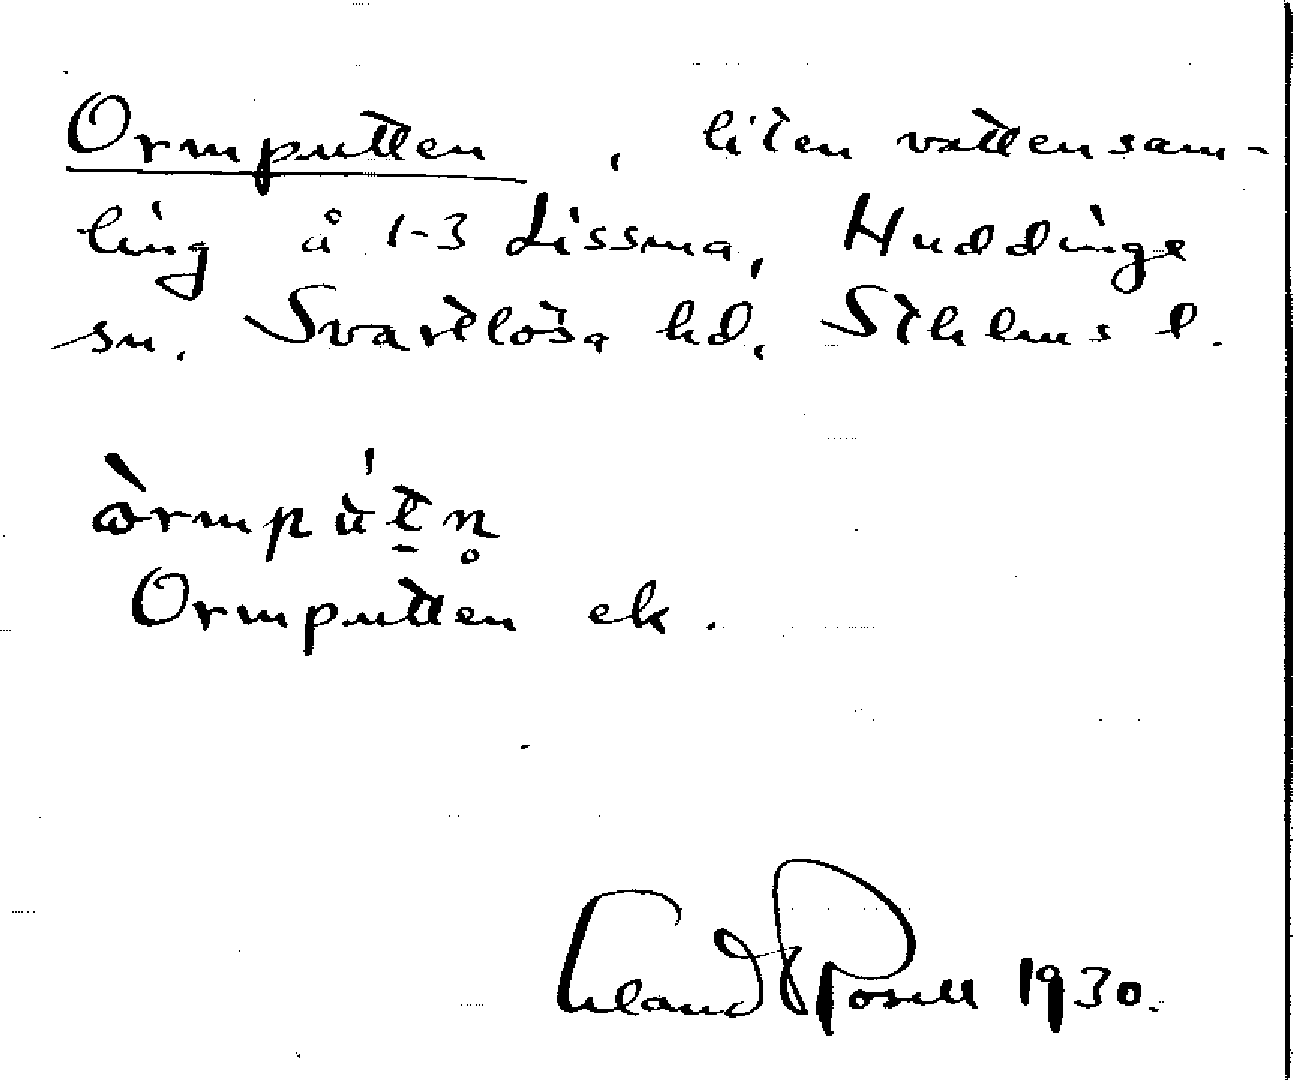 Ormputten, liten vattensam-
ling å 1-3 Lissma, Huddinge
sn. Svartlösa hd, Sthlms l.
òrmpùtn̥
Ormputten ek.
Erland Rosell 1930.